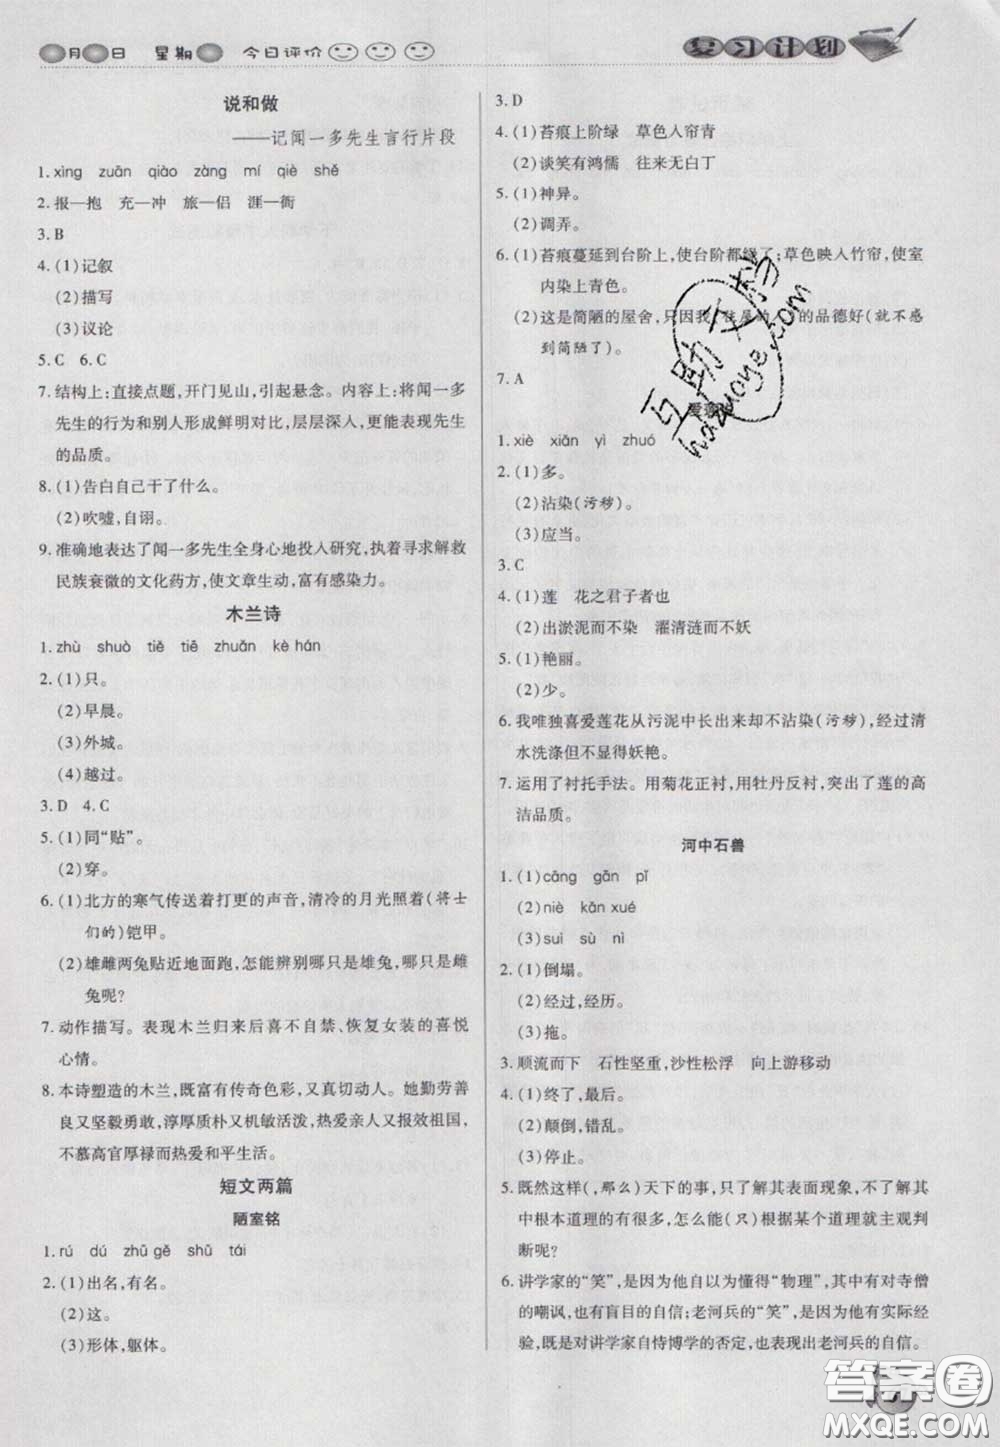 月 日 星期 今日评价
复习计划
说和做
——记闻一多先生言行片段
1. xìng zuān qiào zàng mí qiè shě
2. 报—抱 充—冲 旅—侣 涯—衙
3. B
4. (1)记叙
(2)描写
(3)议论
5. C 6. C
7. 结构上:直接点题,开门见山,引起悬念。内容上:将闻一多
先生的行为和别人形成鲜明对比,层层深入,更能表现先生
的品质。
8. (1)告白自己干了什么。
(2)吹嘘,自诩。
9. 准确地表达了闻一多先生全身心地投入研究,执着寻求解救
民族衰微的文化药方,使文章生动,富有感染力。
木兰诗
1. zhù shuò tiě tiē zhuǎn kè hán
2. (1)只。
(2)早晨。
(3)外城。
(4)越过。
3. D 4. C
5. (1)同“贴”。
(2)穿。
6. (1)北方的寒气传送着打更的声音,清冷的月光照着(将士
们的)铠甲。
(2)雄雌两兔贴近地面跑,怎能辨别哪只是雄兔,哪只是雌
兔呢?
7. 动作描写。表现木兰归来后喜不自禁、恢复女装的喜悦
心情。
8. 本诗塑造的木兰,既富有传奇色彩,又真切动人。她勤劳善
良又坚毅勇敢,淳厚质朴又机敏活泼,热爱亲人又报效祖国,
不慕高官厚禄而热爱和平生活。
短文两篇
陋室铭
1. rú dú zhū gě shū tái
2. (1)出名,有名。
(2)这。
(3)形体,躯体。
3. D
4. (1)苔痕上阶绿 草色入帘青
(2)谈笑有鸿儒 往来无白丁
5. (1)神异。
(2)调弄。
6. (1)苔痕蔓延到台阶上,使台阶都绿了;草色映入竹帘,使室
内染上青色。
(2)这是简陋的屋舍,只因我 的品德好(就不感
到简陋了)。
7. A
爱莲
1. xiè xiān yì zhuó
2. (1)多。
(2)沾染(污秽)。
(3)应当。
3. C
4. (1)莲 花之君子者也
(2)出淤泥而不染 濯清涟而不妖
5. (1)艳丽。
(2)少。
6. 我唯独喜爱莲花从污泥中长出来却不沾染(污秽),经过清
水洗涤但不显得妖艳。
7. 运用了衬托手法。用菊花正衬,用牡丹反衬,突出了莲的高
洁品质。
河中石兽
1. (1)cāng gān pǐ
(2)niè kǎn xué
(3)suì sù nì
2. (1)倒塌。
(2)经过,经历。
(3)拖。
3. 顺流而下 石性坚重,沙性松浮 向上游移动
4. (1)终了,最后。
(2)颠倒,错乱。
(3)停止。
5. 既然这样(,那么)天下的事,只了解其表面现象,不了解其
中根本道理的有很多,怎么能(只)根据某个道理就主观判
断呢?
6. 讲学家的“笑”,是因为他自以为懂得“物理”,其中有对寺僧
的嘲讽,也有盲目的自信;老河兵的“笑”,是因为他有实际经
验,既是对讲学家自恃博学的否定,也表现出老河兵的自信。
互助文档
hdzuoye.com
答案圈
MXQE.COM